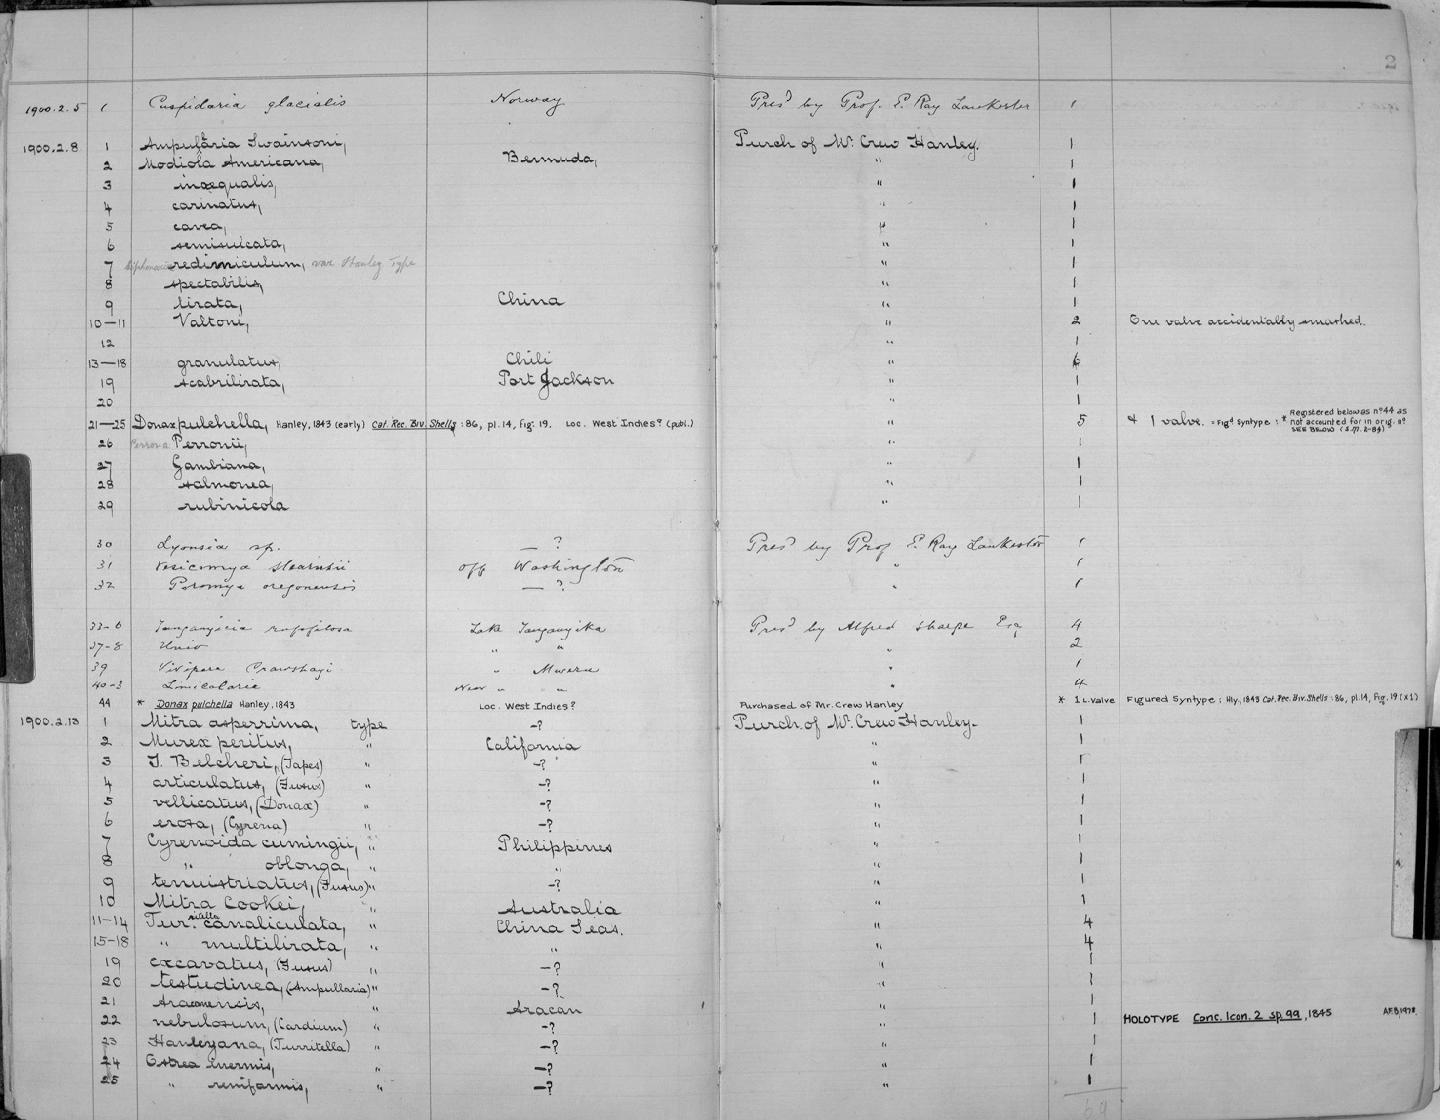 2
1900.2.5 1 Cuspidaria glacialis Norway Presd by Prof. E. Ray Lankester 1
1900.2.8 1 Ampullaria Swainsoni, Purch of Mr. Crew Hanley. 1
2 Modiola Americana, Bermuda, " 1
3 inæqualis, " 1
4 carinatus, " 1
5 cavea, " 1
6 semisulcata, " 1
7 redimiculum, var Hanley Type " 1
8 spectabilis, " 1
9 lirata, China " 1
10—11 Valtoni, " 2 One valve accidentally smashed.
12 " 1
13—18 granulatus, Chili " 6
19 scabrilirata, Port Jackson " 1
20 " 1
21—25 Donax pulchella, Hanley, 1843 (early) Cat. Rec. Biv. Shells: 86, pl.14, fig. 19. Loc. West Indies? (publ.) " 5 + 1 valve. = Figd Syntype : * Registered below as no 44 as
not accounted for in orig. no
SEE BELOW (S.M. 2-84)
26 Perrona Perronii, " 1
27 Gambiana, " 1
28 salmonea, " 1
29 rubinicola " 1
30 Lyonsia sp. — ? Presd by Prof E. Ray Lankester 1
31 Vesicomya stearnsii off Washington " 1
32 Poromya oregonensis — ? " 1
33-6 Tanganyicia rufofilosa Lake Tanganyika Presd by Alfred Sharpe Esq 4
37-8 Unio " " " 2
39 Vivipara Crawshayi " Mweru " 1
40-3 Limicolaria Near " " " 4
44 * Donax pulchella Hanley, 1843 Loc. West Indies? Purchased of Mr. Crew Hanley * 1 L. valve Figured Syntype; Hly, 1843 Cat. Rec. Biv. Shells: 86, pl.14, Fig. 19 (x1)
1900.2.13 1 Mitra asperrima, type —? Purch. of Mr. Crew Hanley. 1
2 Murex peritus, " California " 1
3 T. Belcheri, (Tapes) " —? " 1
4 articulatus, (Fusus) " —? " 1
5 vellicatus, (Donax) " —? " 1
6 erosa, (Cyrena) " —? " 1
7 Cyrenoida cumingii, " Philippines " 1
8 " oblonga, " " " 1
9 tenuistriatus, (Fusus) " —? " 1
10 Mitra Cookei, " Australia " 1
11-14 Tur. canaliculata, " China Seas. " 4
15-18 " multilirata, " " " 4
19 excavatus, (Fusus) " —? " 1
20 testudinea, (Ampullaria) " —? " 1
21 Aracanensis, " Aracan " 1
22 nebulosum, (Cardium) " —? " 1 HOLOTYPE Conc. Icon. 2 sp. 99, 1845 A.F.B. 1978.
23 Hanleyana, (Turritella) " —? " 1
24 Ostrea inermis, " —? " 1
25 " reniformis, " —? " 1
69